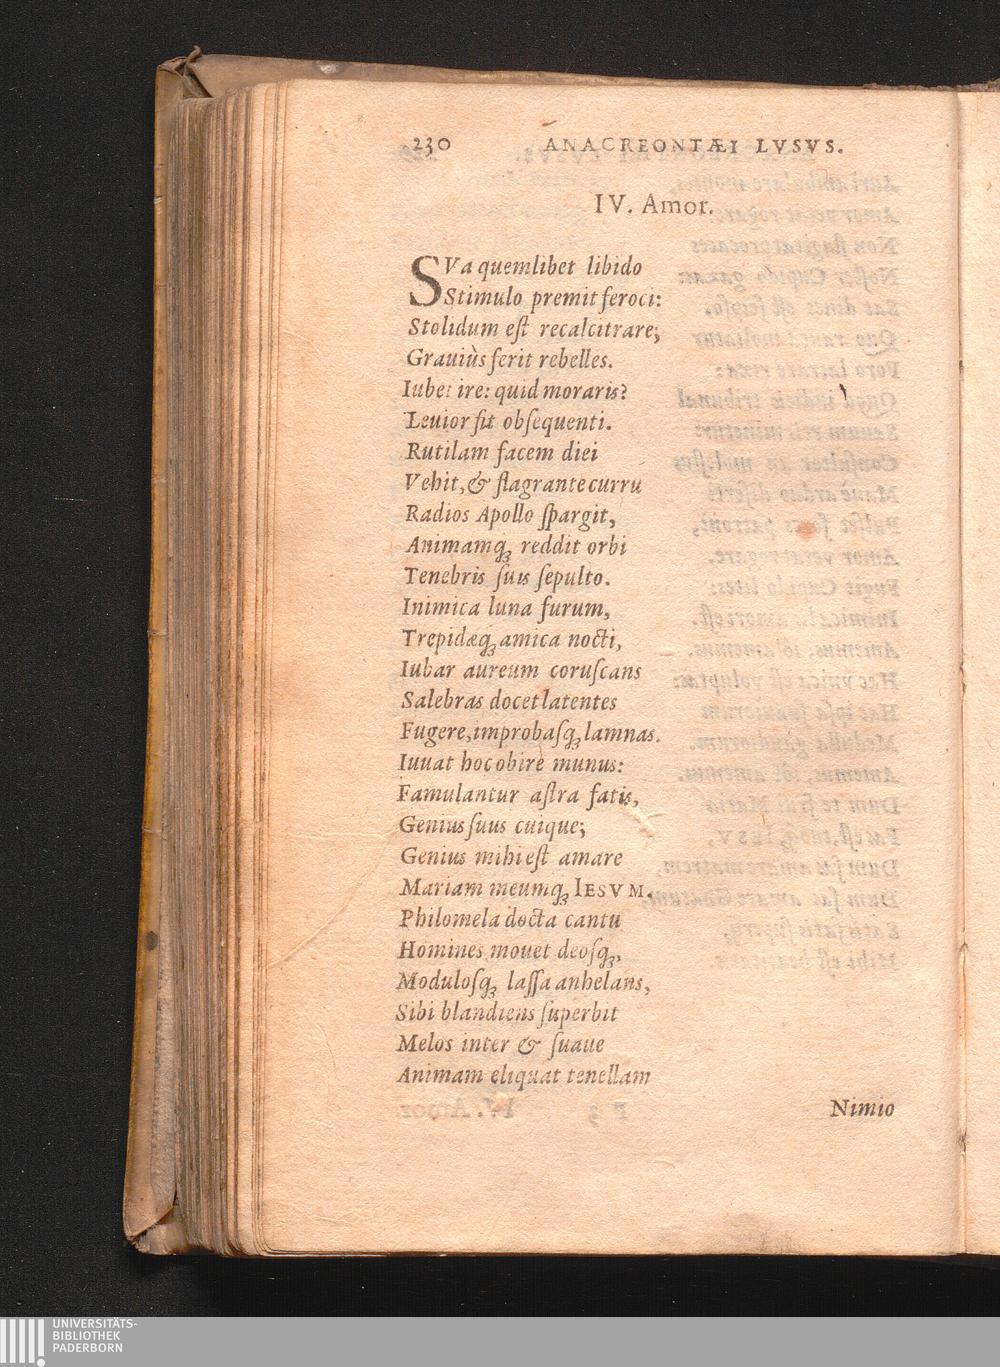 230 ANACREONTÆI LVSVS.
IV. Amor.
SVa quemlibet libido
Stimulo premit feroci:
Stolidum eſt recalcitrare;
Grauiùs ferit rebelles.
Iubet ire: quid moraris?
Leuior fit obſequenti.
Rutilam facem diei
Vehit, & flagrante curru
Radios Apollo ſpargit,
Animamq́; reddit orbi
Tenebris ſuis ſepulto.
Inimica luna furum,
Trepidæq́; amica nocti,
Iubar aureum coruſcans
Salebras docet latentes
Fugere, improbaſq́; lamnas.
Iuuat hoc obire munus:
Famulantur aſtra fatis,
Genius ſuus cuique;
Genius mihi eſt amare
Mariam meumq́; IESVM.
Philomela docta cantu
Homines mouet deoſq́;,
Moduloſq́; laſſa anhelans,
Sibi blandiens ſuperbit
Melos inter & ſuaue
Animam eliquat tenellam
Nimio
UNIVERSITÄTS-
BIBLIOTHEK
PADERBORN